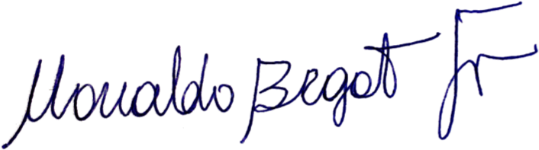 Monaldo Begot Jr